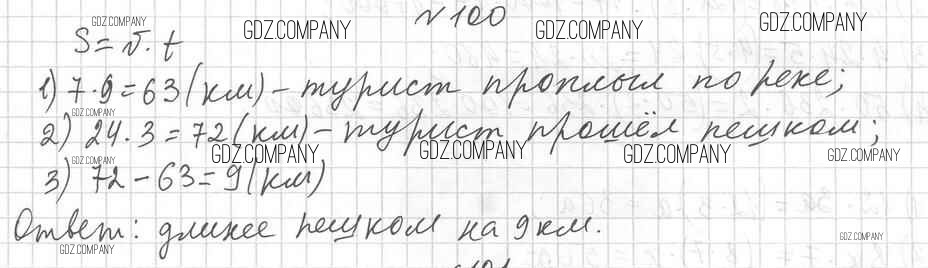 №100
GDZ.COMPANY GDZ.COMPANY GDZ.COMPANY GDZ.COMPANY
S = v · t
1) 7 · 9 = 63 (км) – турист проплыл по реке;
GDZ.COMPANY
2) 24 · 3 = 72 (км) – турист прошёл пешком;
GDZ.COMPANY GDZ.COMPANY GDZ.COMPANY GDZ.COMPANY GDZ.COMPANY
3) 72 – 63 = 9 (км)
Ответ: длинее пешком на 9 км.
GDZ.COMPANY GDZ.COMPANY